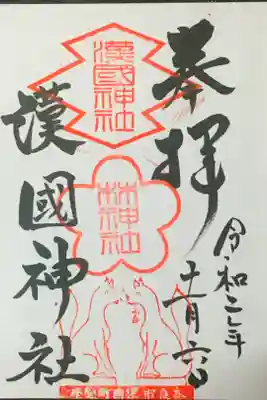 奉拝
令和二年
十一月六日
漢國神社
漢國神社
林神社